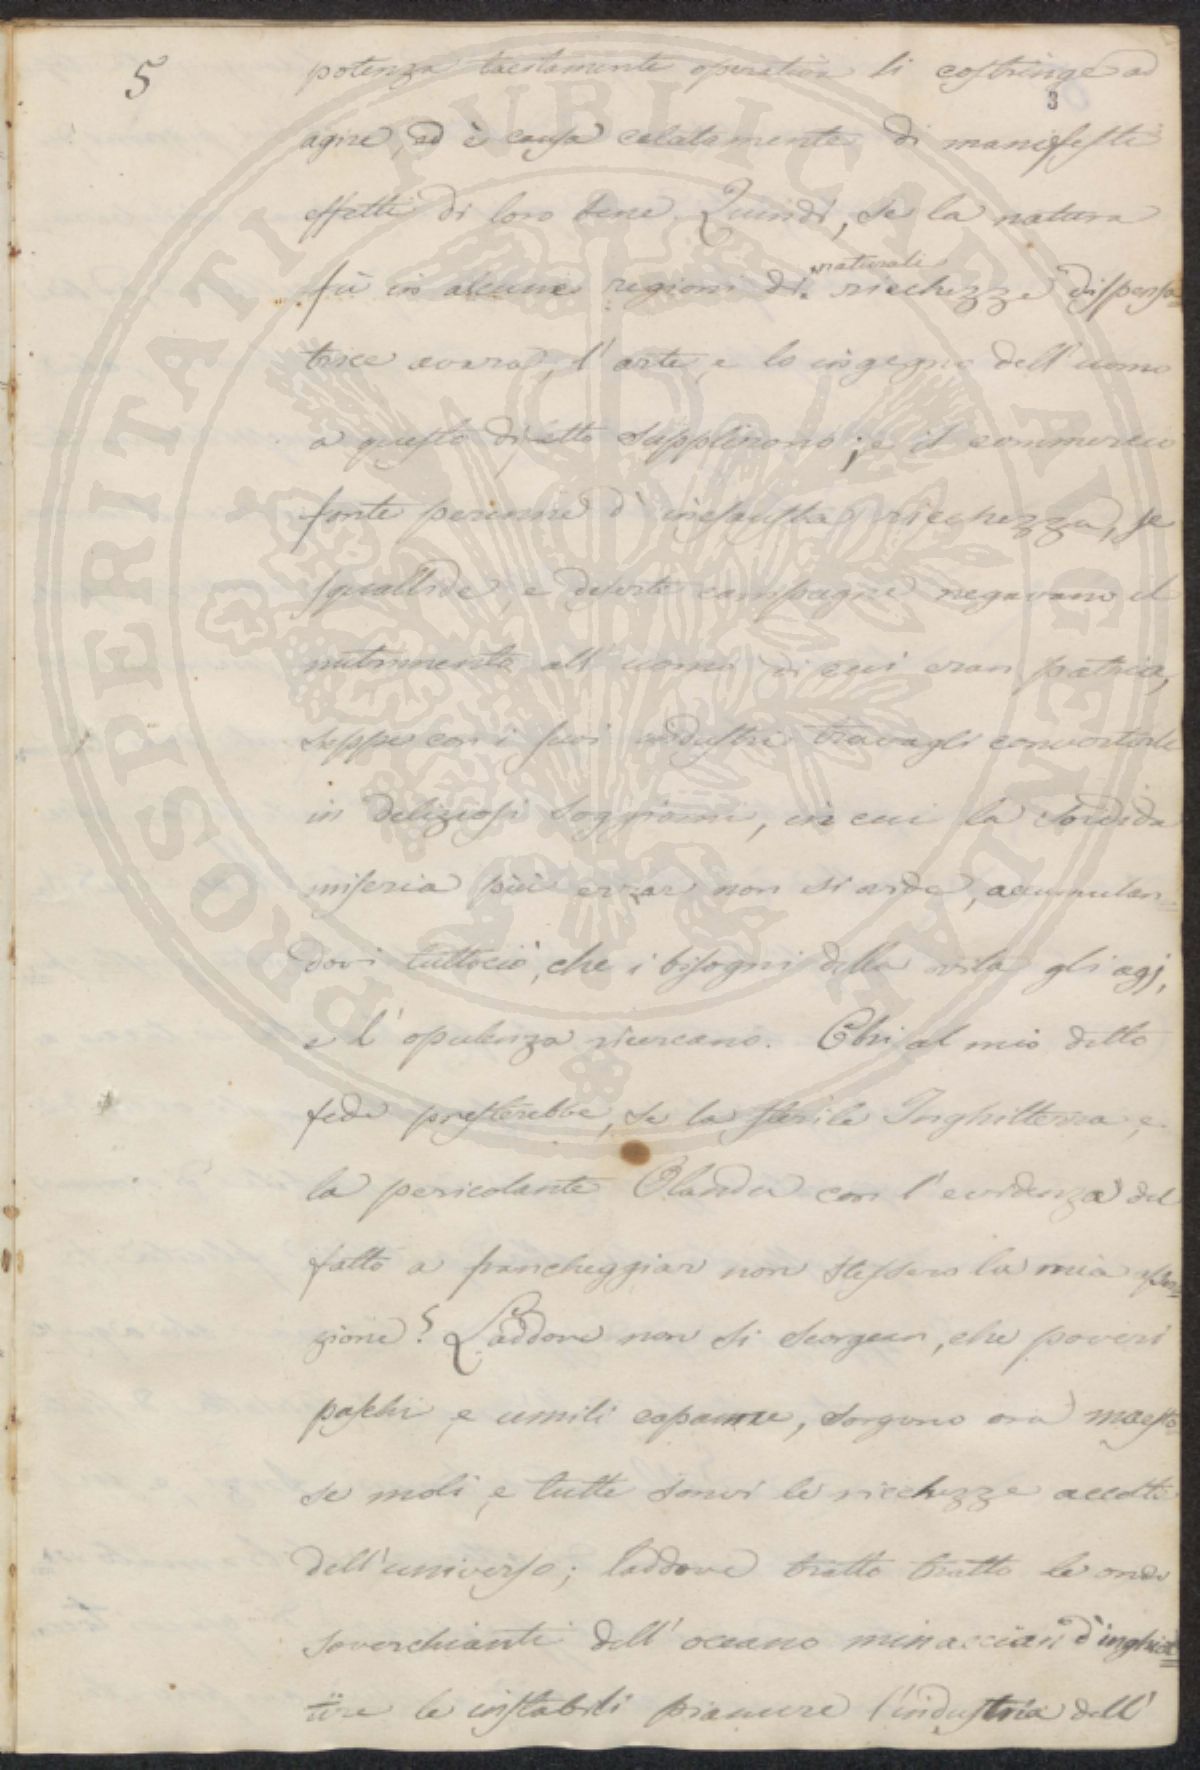 5
potenza tacitamente operatrice li costringe ad
3
agire, ed è causa celatamente di manifesti
effetti di loro bene. Quindi, se la natura
fù in alcune regioni di naturali ricchezze dispensa=
trice avara, l'arte, e lo ingegno dell'uomo
a questo difetto supplirono; e il commercio
fonte perenne d'inesausta ricchezza, se
squallide, e deserte campagne negavano il
nutrimento all'uomo di cui eran patria,
seppe con i suoi industri travagli convertirle
in deliziosi soggiorni, in cui la sordida
miseria più errar non si vide, accumulan=
dovi tuttociò, che i bisogni della vita gli agj,
e l'opulenza ricercano. Chi al mio detto
fede presterebbe, se la sterile Inghilterra, e
la pericolante Olanda con l'evidenza del
fatto a francheggiar non stessero la mia asser=
zione? Laddove non si scorgean, che poveri
paschi, e umili capanne, sorgono ora maesto=
se moli, e tutte sonvi le ricchezze accolte
dell'universo; laddove tratto tratto le onde
soverchianti dell'oceano minaccian d'inghiot=
tire le instabili pianure l'industria dell'
PROSPERITATI PUBLICAE AUGENDAE